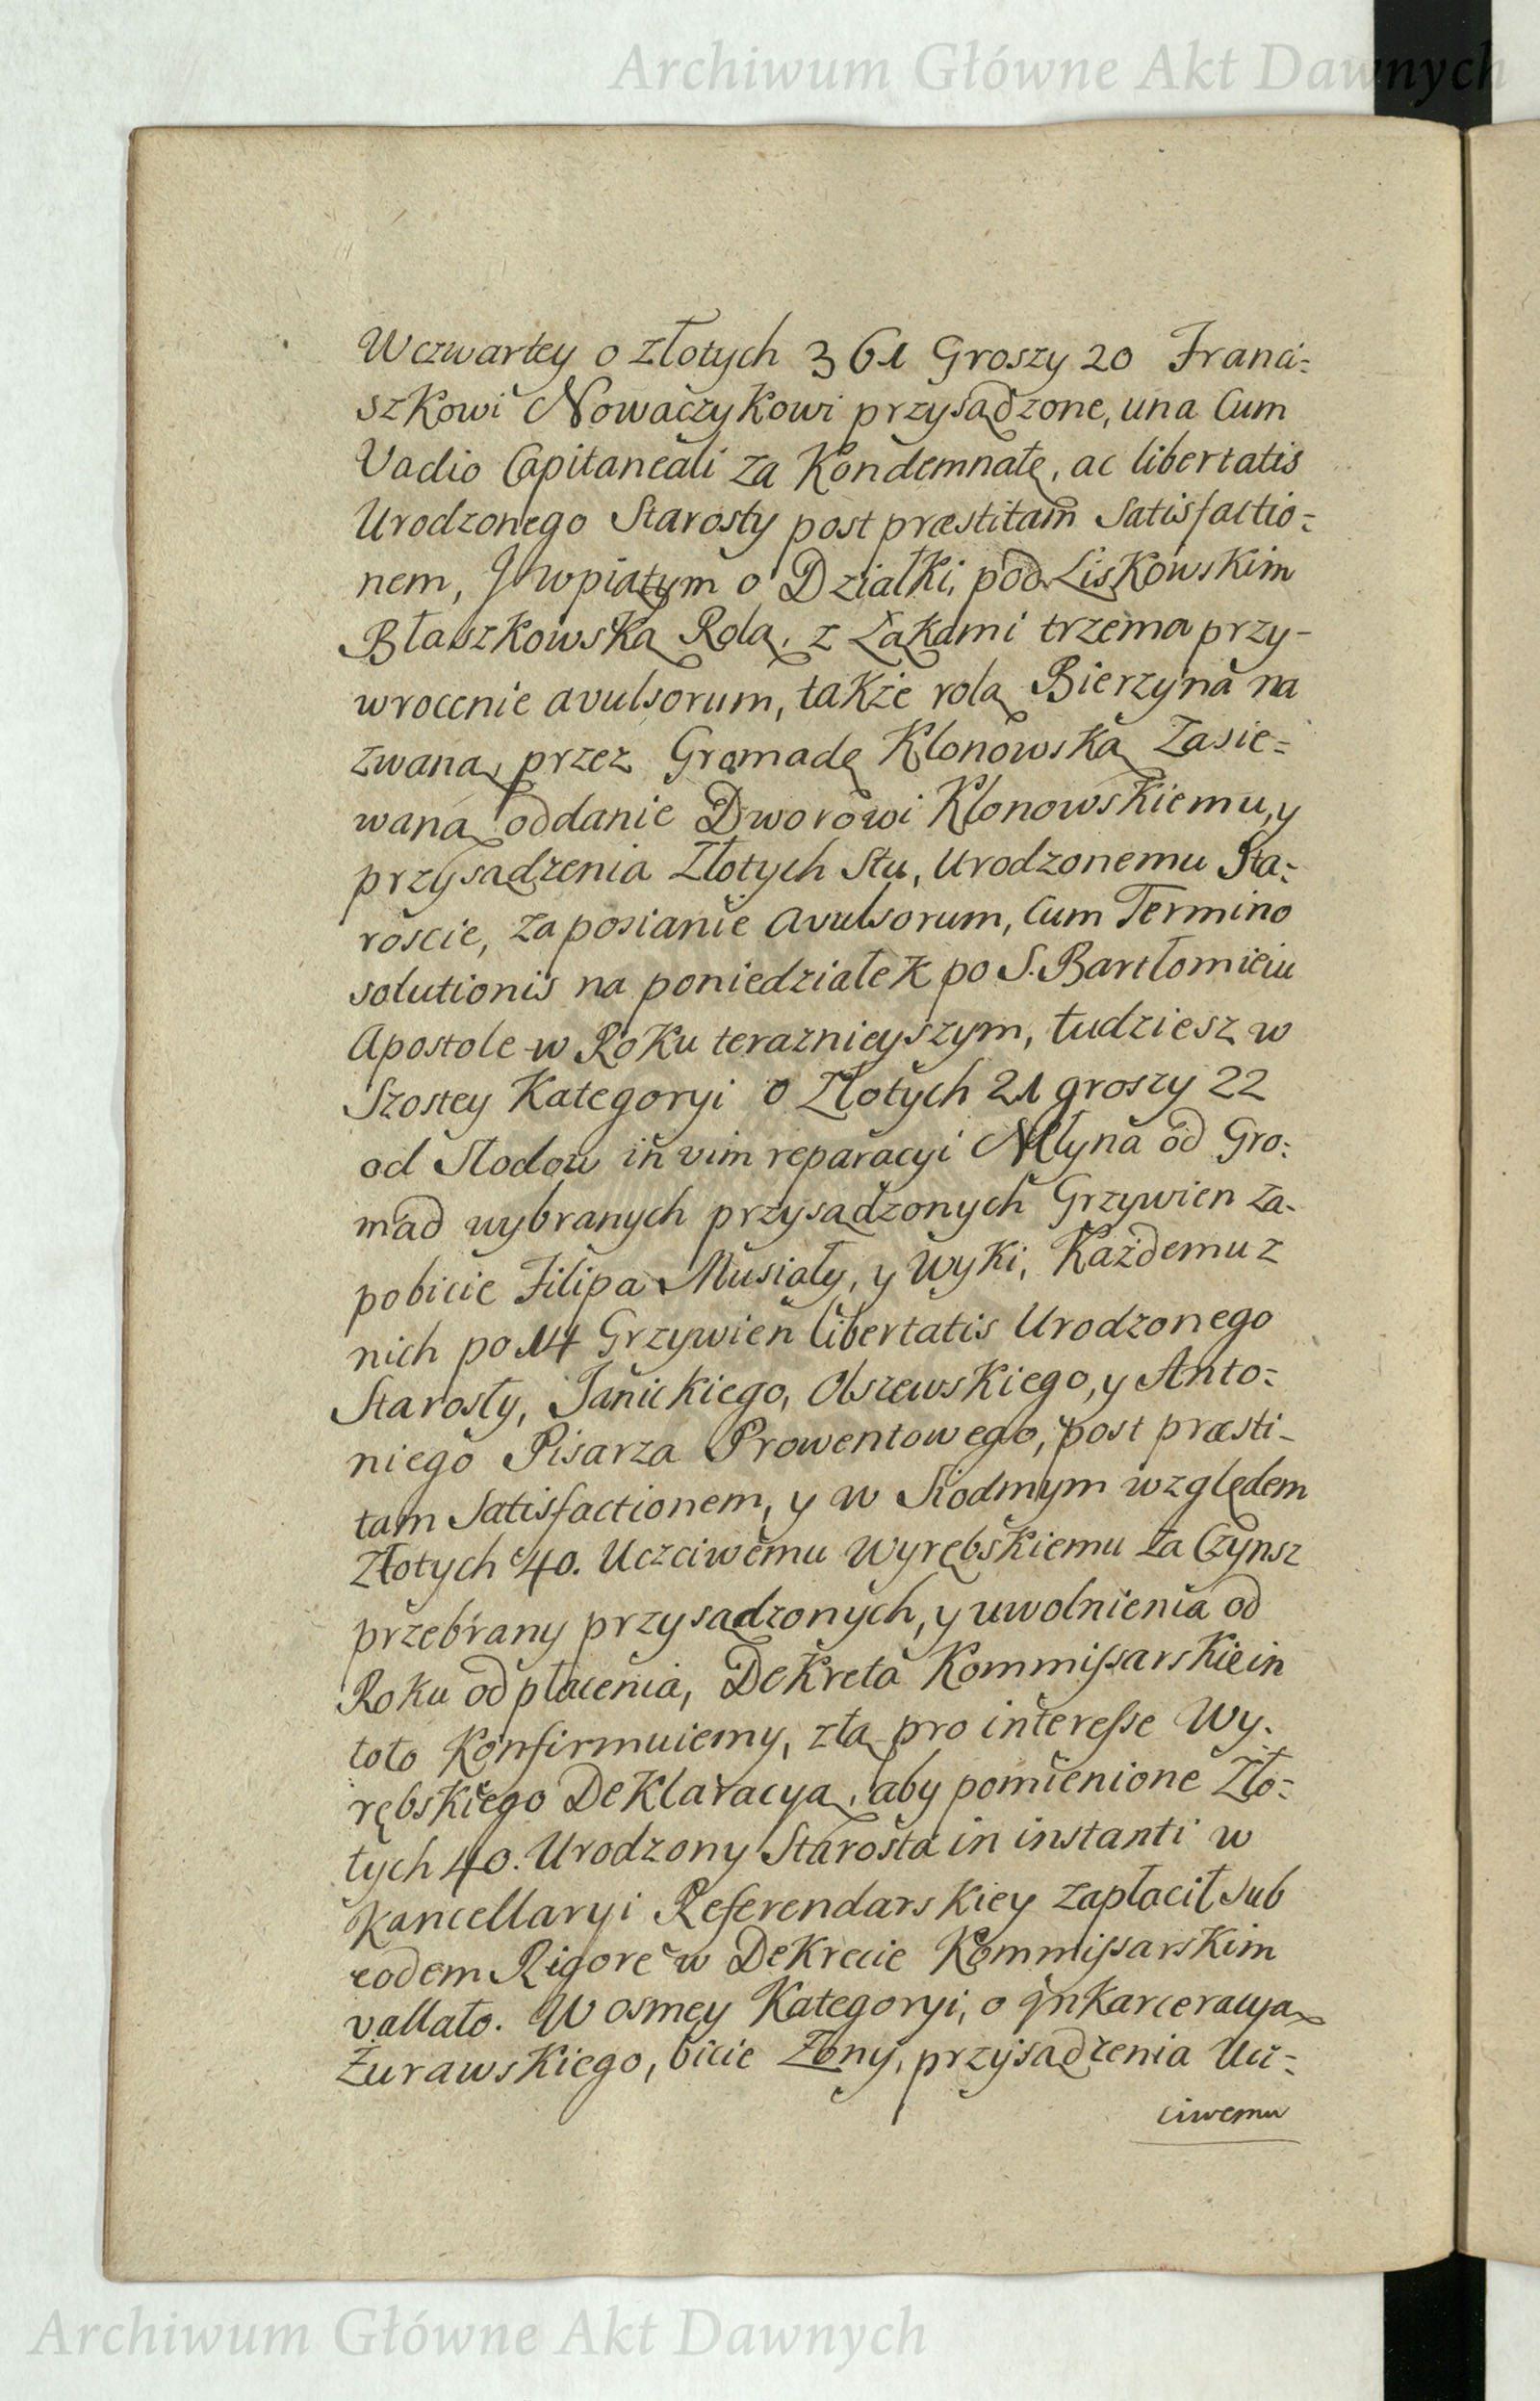 Archiwum Główne Akt Dawnych
Wczwartey o złotych 361 Groszy 20 Franci=
szkowi Nowaczykowi przysądzone, una Cum
Vadio Capitaneali za Kondemnatę, ac libertatis
Urodzonego Starosty post præstitam Satisfactio=
nem, J wpiątym o Działki, pod Liskowskim
Błaszkowską Rolą, z Łąkami trzema przy-
wrocenie avulsorum, także rolą Bierzyna na
zwaną, przez Gromadę Klonowską Zasie=
waną oddanie Dworowi Klonowskiemu, y
przysądzenia Złotych Stu, Urodzonemu Sta=
roscie, za posianie avulsorum, Cum Termino
solutionis na poniedziałek po S. Bartłomieiu
Apostole w Roku teraznieyszym, tudziesz w
Szostey Kategoryi o Złotych 21 groszy 22
od Słodow in vim reparacyi Młyna od Gro=
mad wybranych przysądzonych Grzywien za-
pobicie Filipa Musiały, y Wyki, Każdemu z
nich po 14 Grzywien libertatis Urodzonego
Starosty, Janickiego, Olszewskiego, y Anto=
niego Pisarza Prowentowego, post præsti-
tam Satisfactionem, y w Siodmym względem
Złotych 40. Uczciwemu Wyrębskiemu za Czynsz
przebrany przysądzonych, y uwolnienia od
Roku od płacenia, Dekreta Kommissarskie in
toto Konfirmuiemy, ztą pro interesse Wy=
rębskiego Deklaracyą, aby pomienione Zło=
tych 40. Urodzony Starosta in instanti w
Kancellaryi Referendarskiey zapłacił sub
eodem Rigore w Dekrecie Kommissarskim
vallato. W osmey Kategoryi, o Jnkarceracyą
Żurawskiego, bicie Żony, przysądzenia Ucz=
ciwemu
Archiwum Główne Akt Dawnych